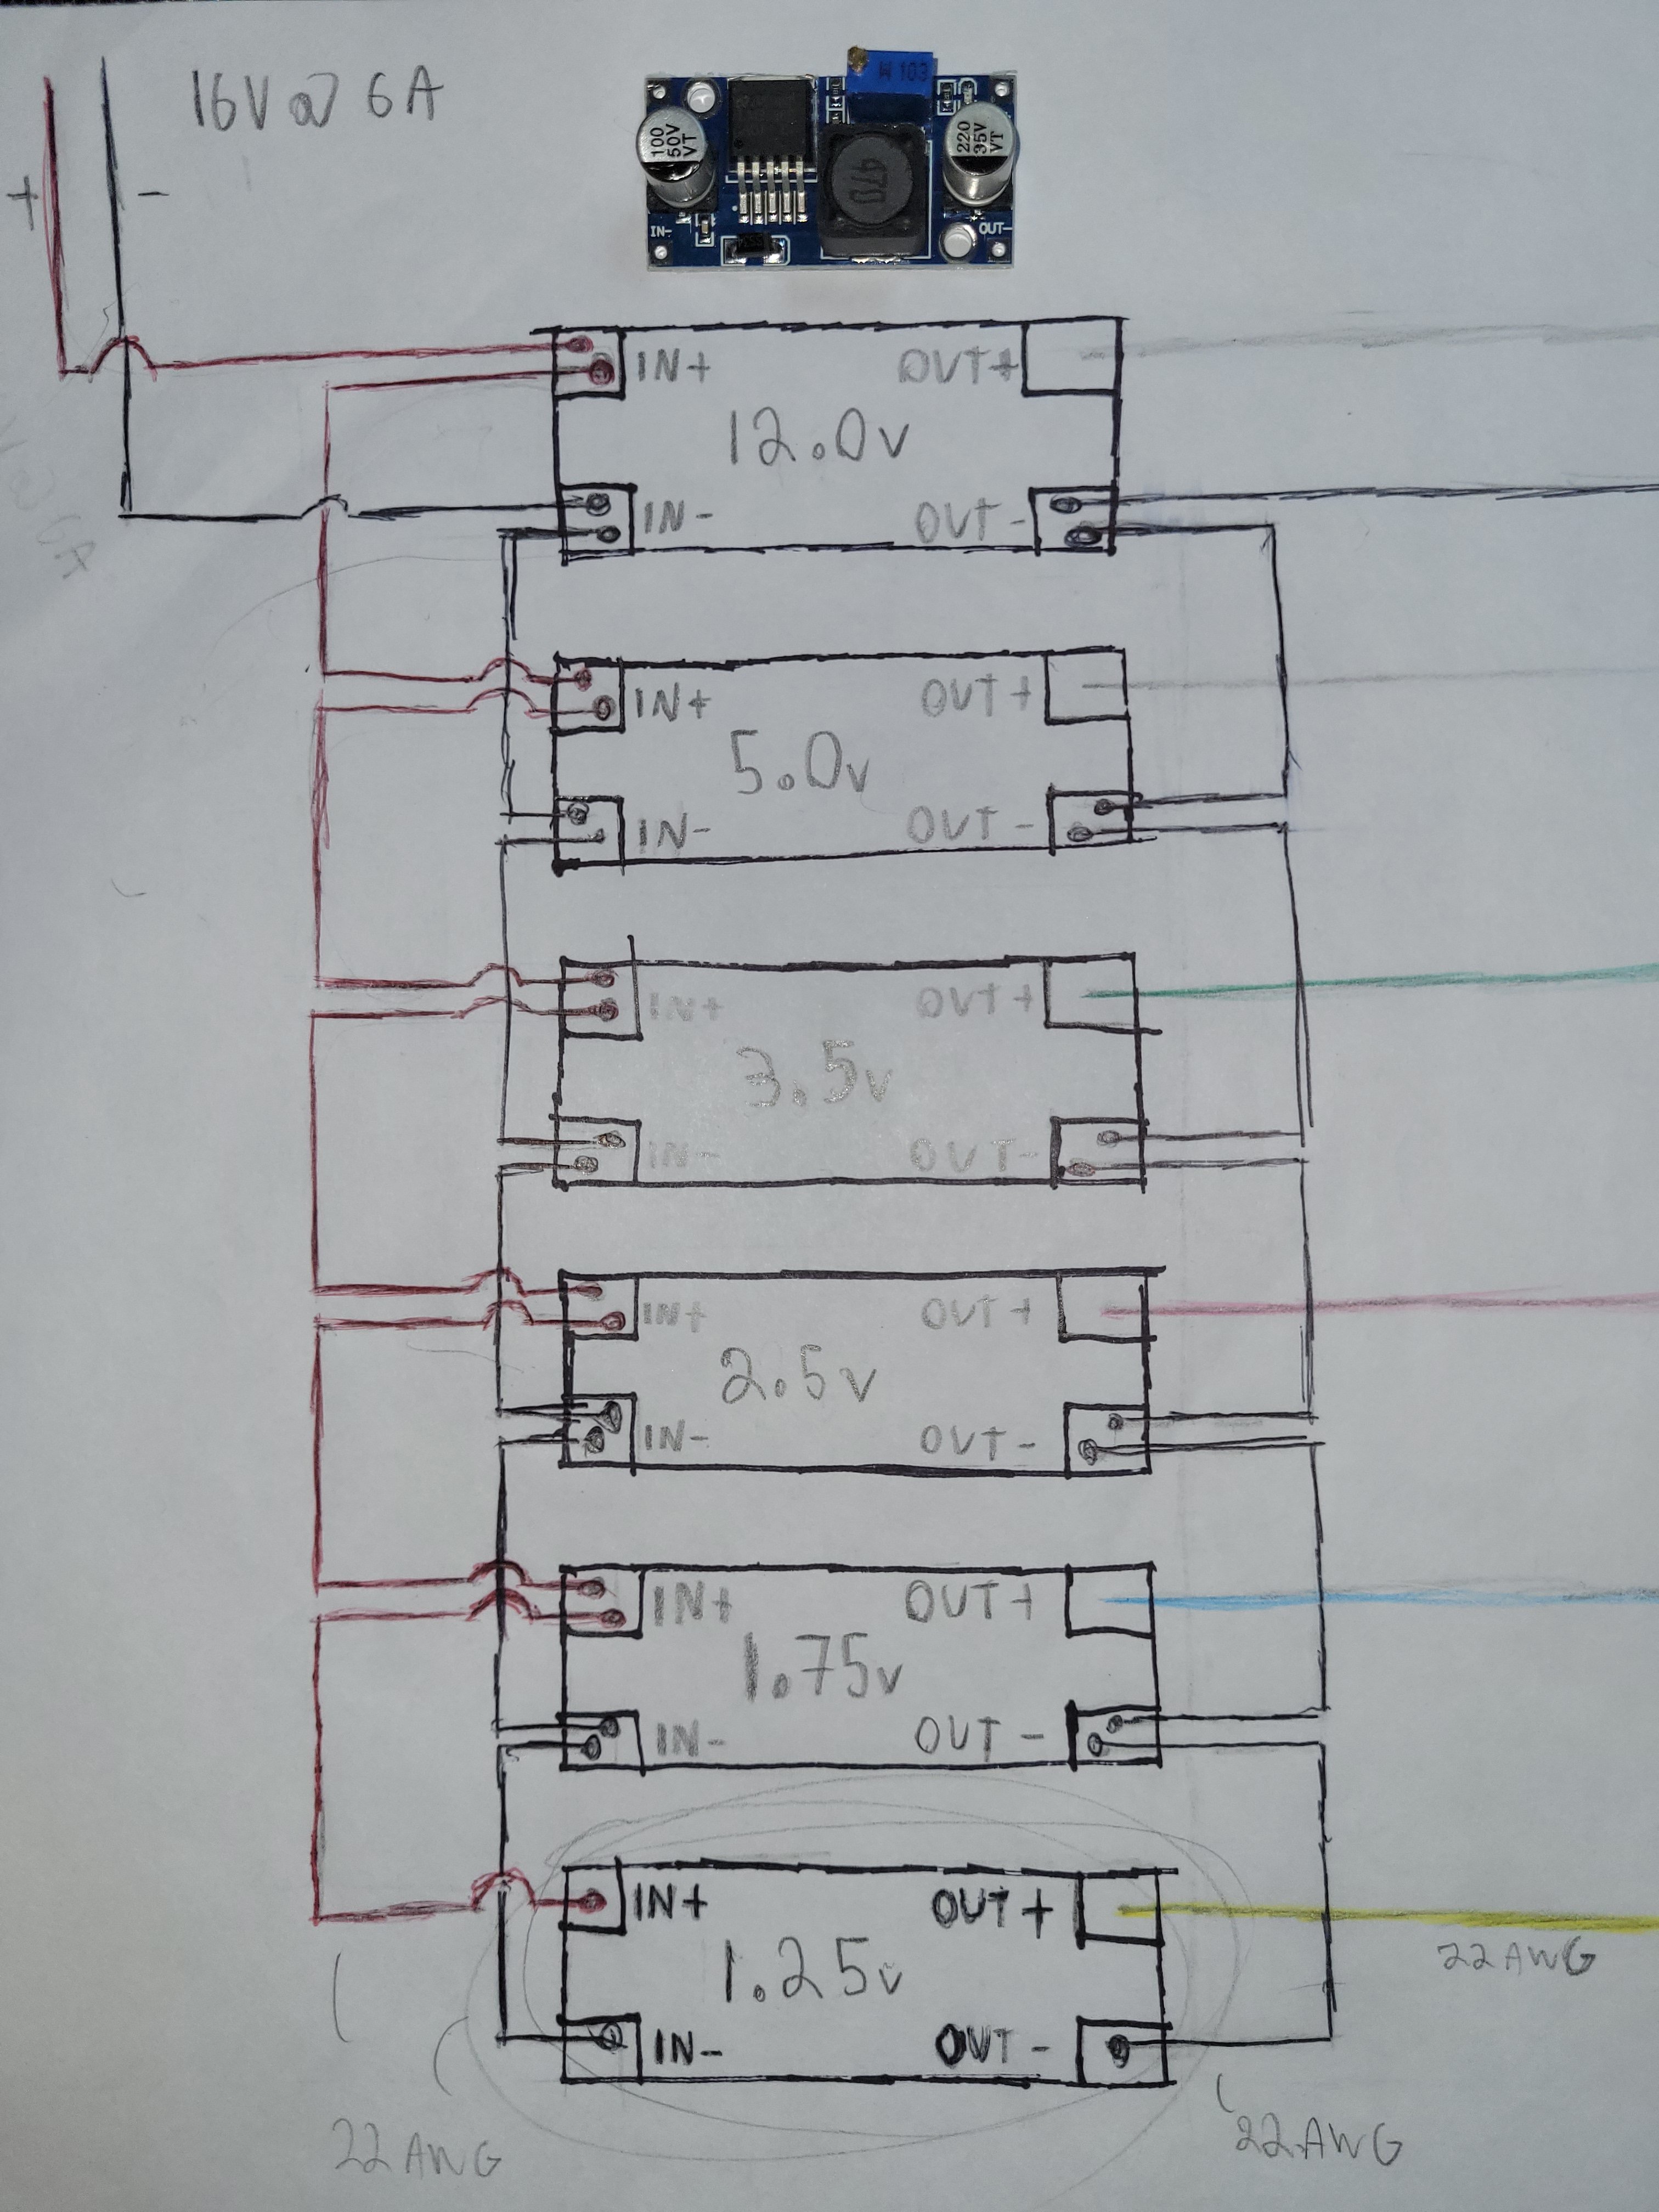 16V @ 6A
+ -
W 103
100
50V
VT
220
35V
VT
470
IN- OUT-
IN+ OUT+
12.0v
IN- OUT-
IN+ OUT+
5.0v
IN- OUT-
IN+ OUT+
3.5v
IN- OUT-
IN+ OUT+
2.5v
IN- OUT-
IN+ OUT+
1.75v
IN- OUT-
IN+ OUT+
1.25v
22 AWG
IN- OUT-
22 AWG 22 AWG